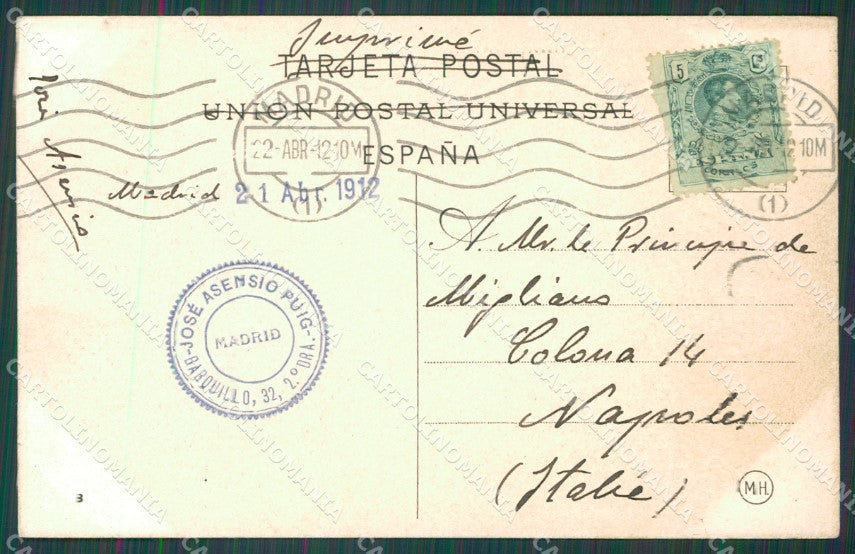 Imprimé
TARJETA POSTAL
UNION POSTAL UNIVERSAL
ESPAÑA
MADRID
22-ABR-12 10M
(1)
5 Cs
MADRID
12 10M
(1)
José Asensio
Madrid 21 Abr. 1912
JOSÉ ASENSIO PUIG
MADRID
BARQUILLO, 32, 2.º DRA.
A. Mr. le Principe de
Migliano
Colona 14
Napoles
(Italie)
3
M.H.
CARTOLINOMANIA